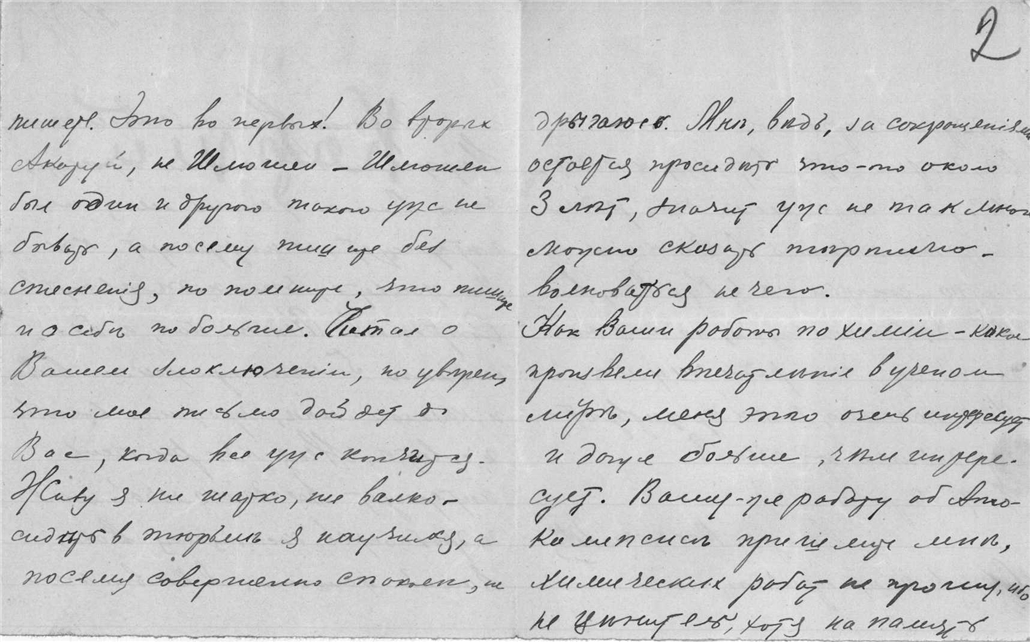 2
пишете. Это во первых! Во вторых
Акатуй, не Шлюшен – Шлюшен
был один и другого такого уже не
бывать, а посему пишите без
стеснения, но помните, что пишите
и о себе побольше. Читал о
Вашем злоключении, но уверен,
что мое письмо дойдет до
Вас, когда все уже кончится.
Живу я ни шатко, ни валко –
сидеть в тюрьме я научился, а
посему совершенно спокоен, не
дрыгаюсь. Мне, ведь, за сокращением
остается просидеть что-то около
3 лет, значит уже не так много
можно сказать терпимо –
волноваться нечего.
Как Ваши работы по химіи – какое
произвели впечатленіе в ученом
мірѣ, меня это очень интересует
и даже больше, чем интере-
сует. Вашу-же работу об
пришлите мнѣ,
химических работ не прошу, ибо
не ценитель, хотя на память